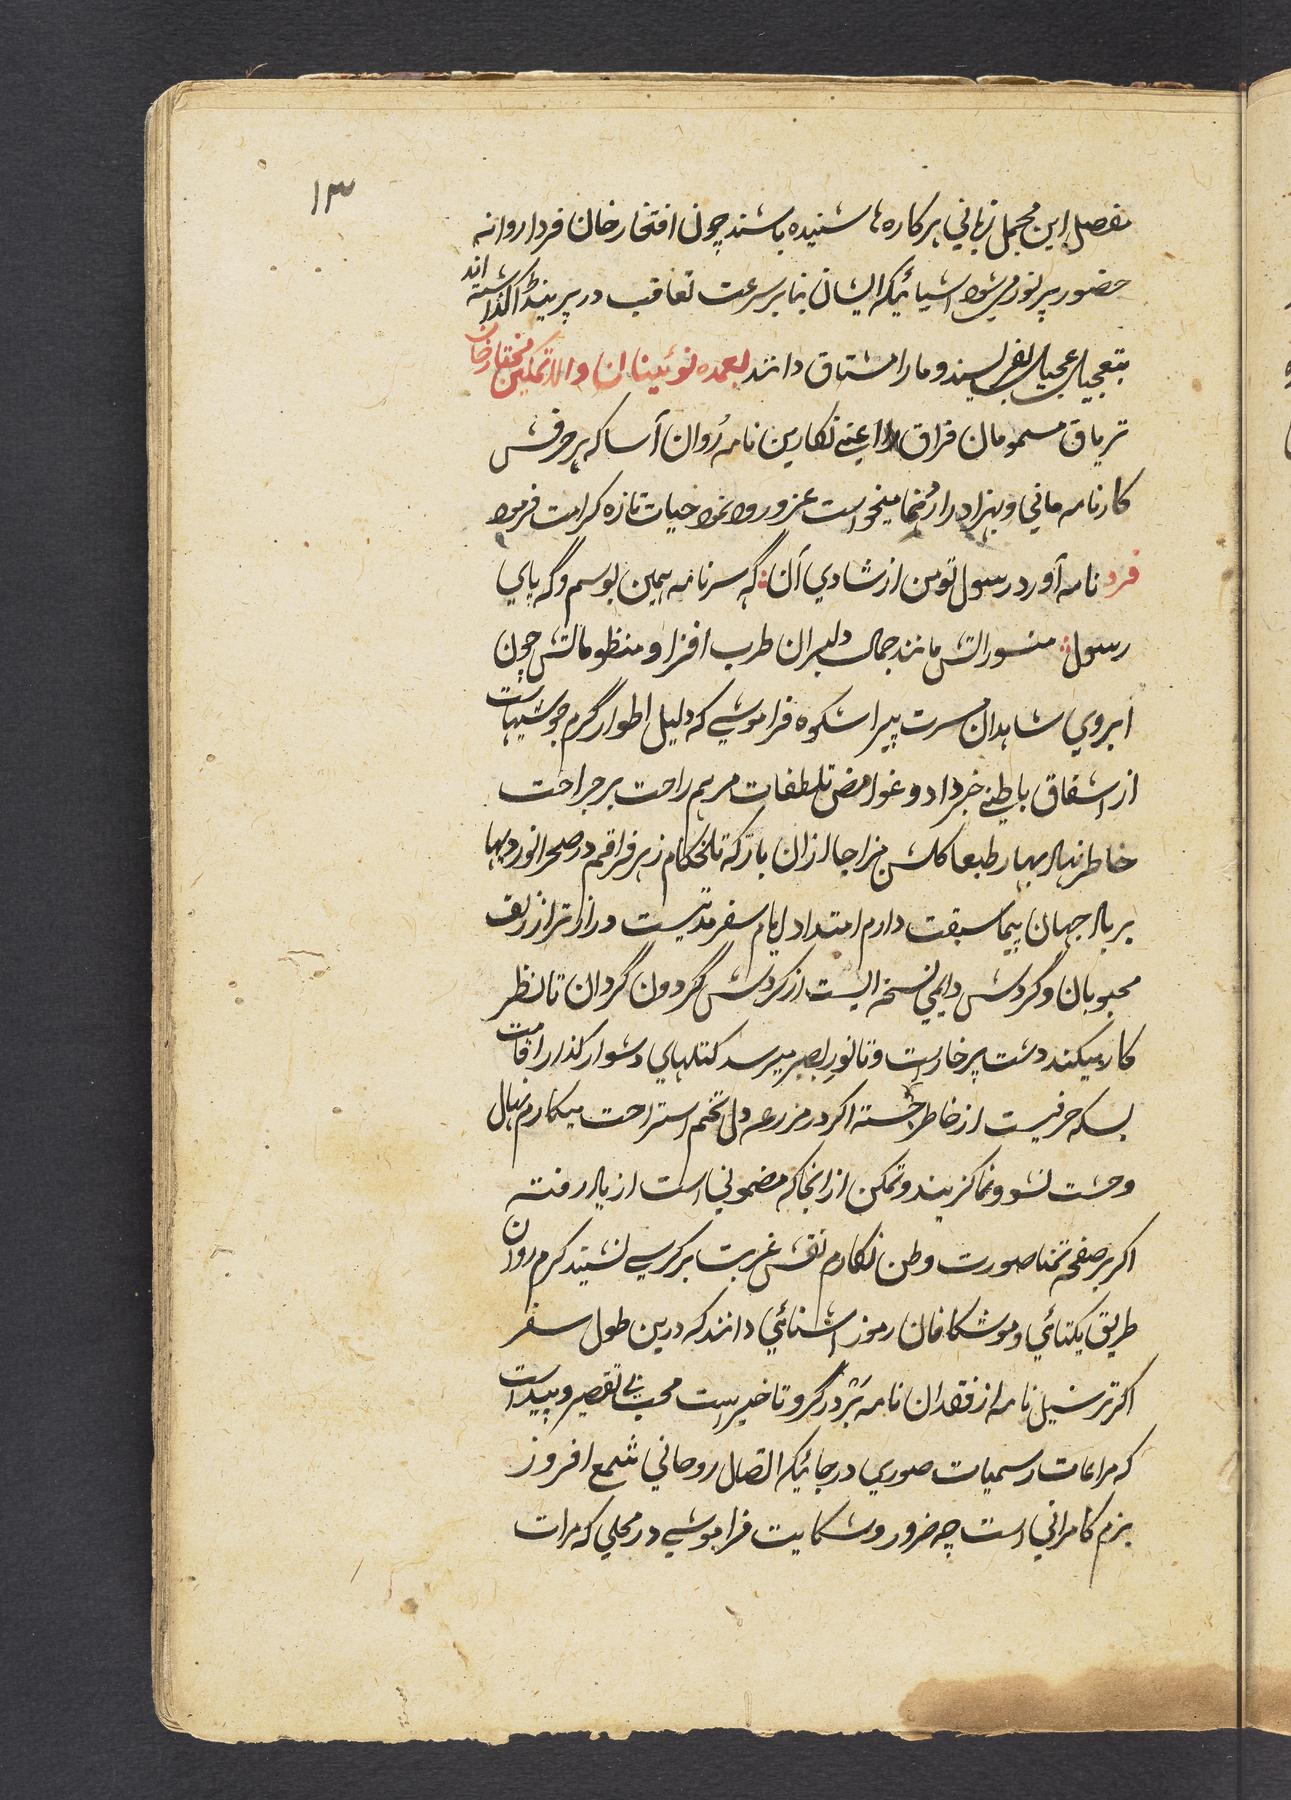 ۱۳
مفصل این مجمل زبانی هرکاره‌ها شنیده باشند چون افتخار خان فردا روانه
حضور پرنور می‌شود اشیائیکه ایشان بنابر سرعت تعاقب در پرینده گذاشته اند
بتعجیل عجیل بفریسند و مارا مشتاق دانند بعمده نوئینان والا تمکین مختار خان
تریاق مسمومان فراق اعنی نگارین نامه روان آسا که هر حرفش
کارنامه مانی و بهزاد را رونما میخواست عز ورود نمود حیات تازه کرامت فرمود
فرد نامه آورد رسول تو من از شادی آن : گه سر نامه همین بوسم و گه پای
رسول : منثوراتش مانند جمال دلبران طرب افزا و منظوماتش چون
ابروی شاهدان مسرت پیرا شکوه فراموشی که دلیل اطوار گرم جوشیهاست
از اشفاق باطنی خبر داد و غوامض تلطفات مرهم راحت بر جراحت
خاطر نهاد بهار طبعا گلشن مزاجا ازان باز که تلخکام زهر فراقم در صحرا نوردیها
بر باد جهان پیما سبقت دارم امتداد ایام سفر مدتیست دراز تر از زلف
محبوبان و گردش دایمی نسخه ایست از گردش گردون گردان تا نظر
کار میکند دشت پر خار است و تا نور بصر میرسد کتلهای دشوار گذار اقامت
بسکه حرفیست از خاطر جسته اگر در مزرعه دل تخم استراحت میکارم نهال
وحشت نشو و نما گزیند و تمکن از انجا که مضمونی است از یاد رفته
اگر بر صفحه تمنا صورت وطن نگارم نقش غربت بر کرسی نشیند گرم روان
طریق یکتائی و موشکافان رموز اشنائی دانند که درین طول سفر
اگر ترسیل نامه از فقدان نامه بر در گرو تاخیر است محب بی تقصیر و پیداست
که مراعات رسمیات صوری در جائیکه اتصال روحانی شمع افروز
بزم کامرانی است چه ضرور و شکایت فراموشی در محلی که مرات